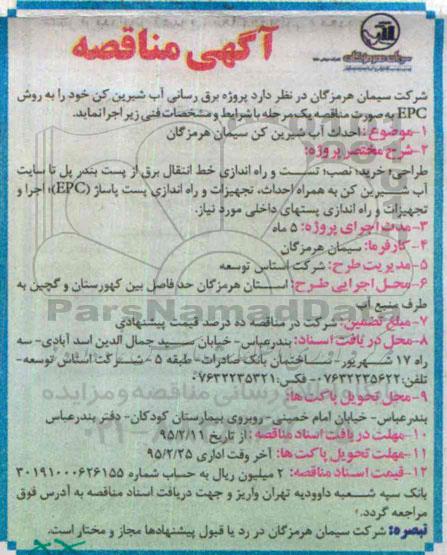 آگهی مناقصه
سیمان هرمزگان
شرکت سیمان هرمزگان در نظر دارد پروژه برق رسانی آب شیرین کن خود را به روش
EPC به صورت مناقصه یک مرحله با شرایط و مشخصات فنی زیر اجرا نماید.
۱-موضوع: احداث آب شیرین کن سیمان هرمزگان
۲-شرح مختصر پروژه:
طراحی؛ خرید؛ نصب؛ تست و راه اندازی خط انتقال برق از پست بندر پل تا سایت
آب شیرین کن به همراه احداث، تجهیزات و راه اندازی پست پاساژ (EPC)؛ اجرا و
تجهیزات و راه اندازی پستهای داخلی مورد نیاز.
۳-مدت اجرای پروژه: ۵ ماه
۴-کارفرما: سیمان هرمزگان
۵-مدیریت طرح: شرکت اساس توسعه
۶-محل اجرایی طرح: استان هرمزگان حد فاصل بین کهورستان و گچین به
طرف منبع آب
۷-مبلغ تضمین: شرکت در مناقصه ده درصد قیمت پیشنهادی
۸-محل دریافت اسناد: بندرعباس-خیابان سید جمال الدین اسد آبادی-سه
راه ۱۷ شهریور-ساختمان بانک صادرات-طبقه ۵-شرکت اساس توسعه-
تلفن:۰۷۶۳۲۲۳۵۶۲۲-فکس:۰۷۶۳۲۲۳۵۳۲۱
۹-محل تحویل پاکت ها:
بندرعباس- خیابان امام خمینی-روبروی بیمارستان کودکان- دفتر بندرعباس
۱۰-مهلت دریافت اسناد مناقصه: از تاریخ ۹۵/۲/۱۱
۱۱-مهلت تحویل پاکت ها: آخر وقت اداری ۹۵/۲/۲۵
۱۲-قیمت اسناد مناقصه: ۲ میلیون ریال به حساب شماره ۳۰۱۹۱۰۰۰۶۲۶۱۵۵
بانک سپه شعبه داوودیه تهران واریز و جهت دریافت اسناد مناقصه به آدرس فوق
مراجعه گردد.
تبصره: شرکت سیمان هرمزگان در رد یا قبول پیشنهادها مجاز و مختار است.
ParsNamadData